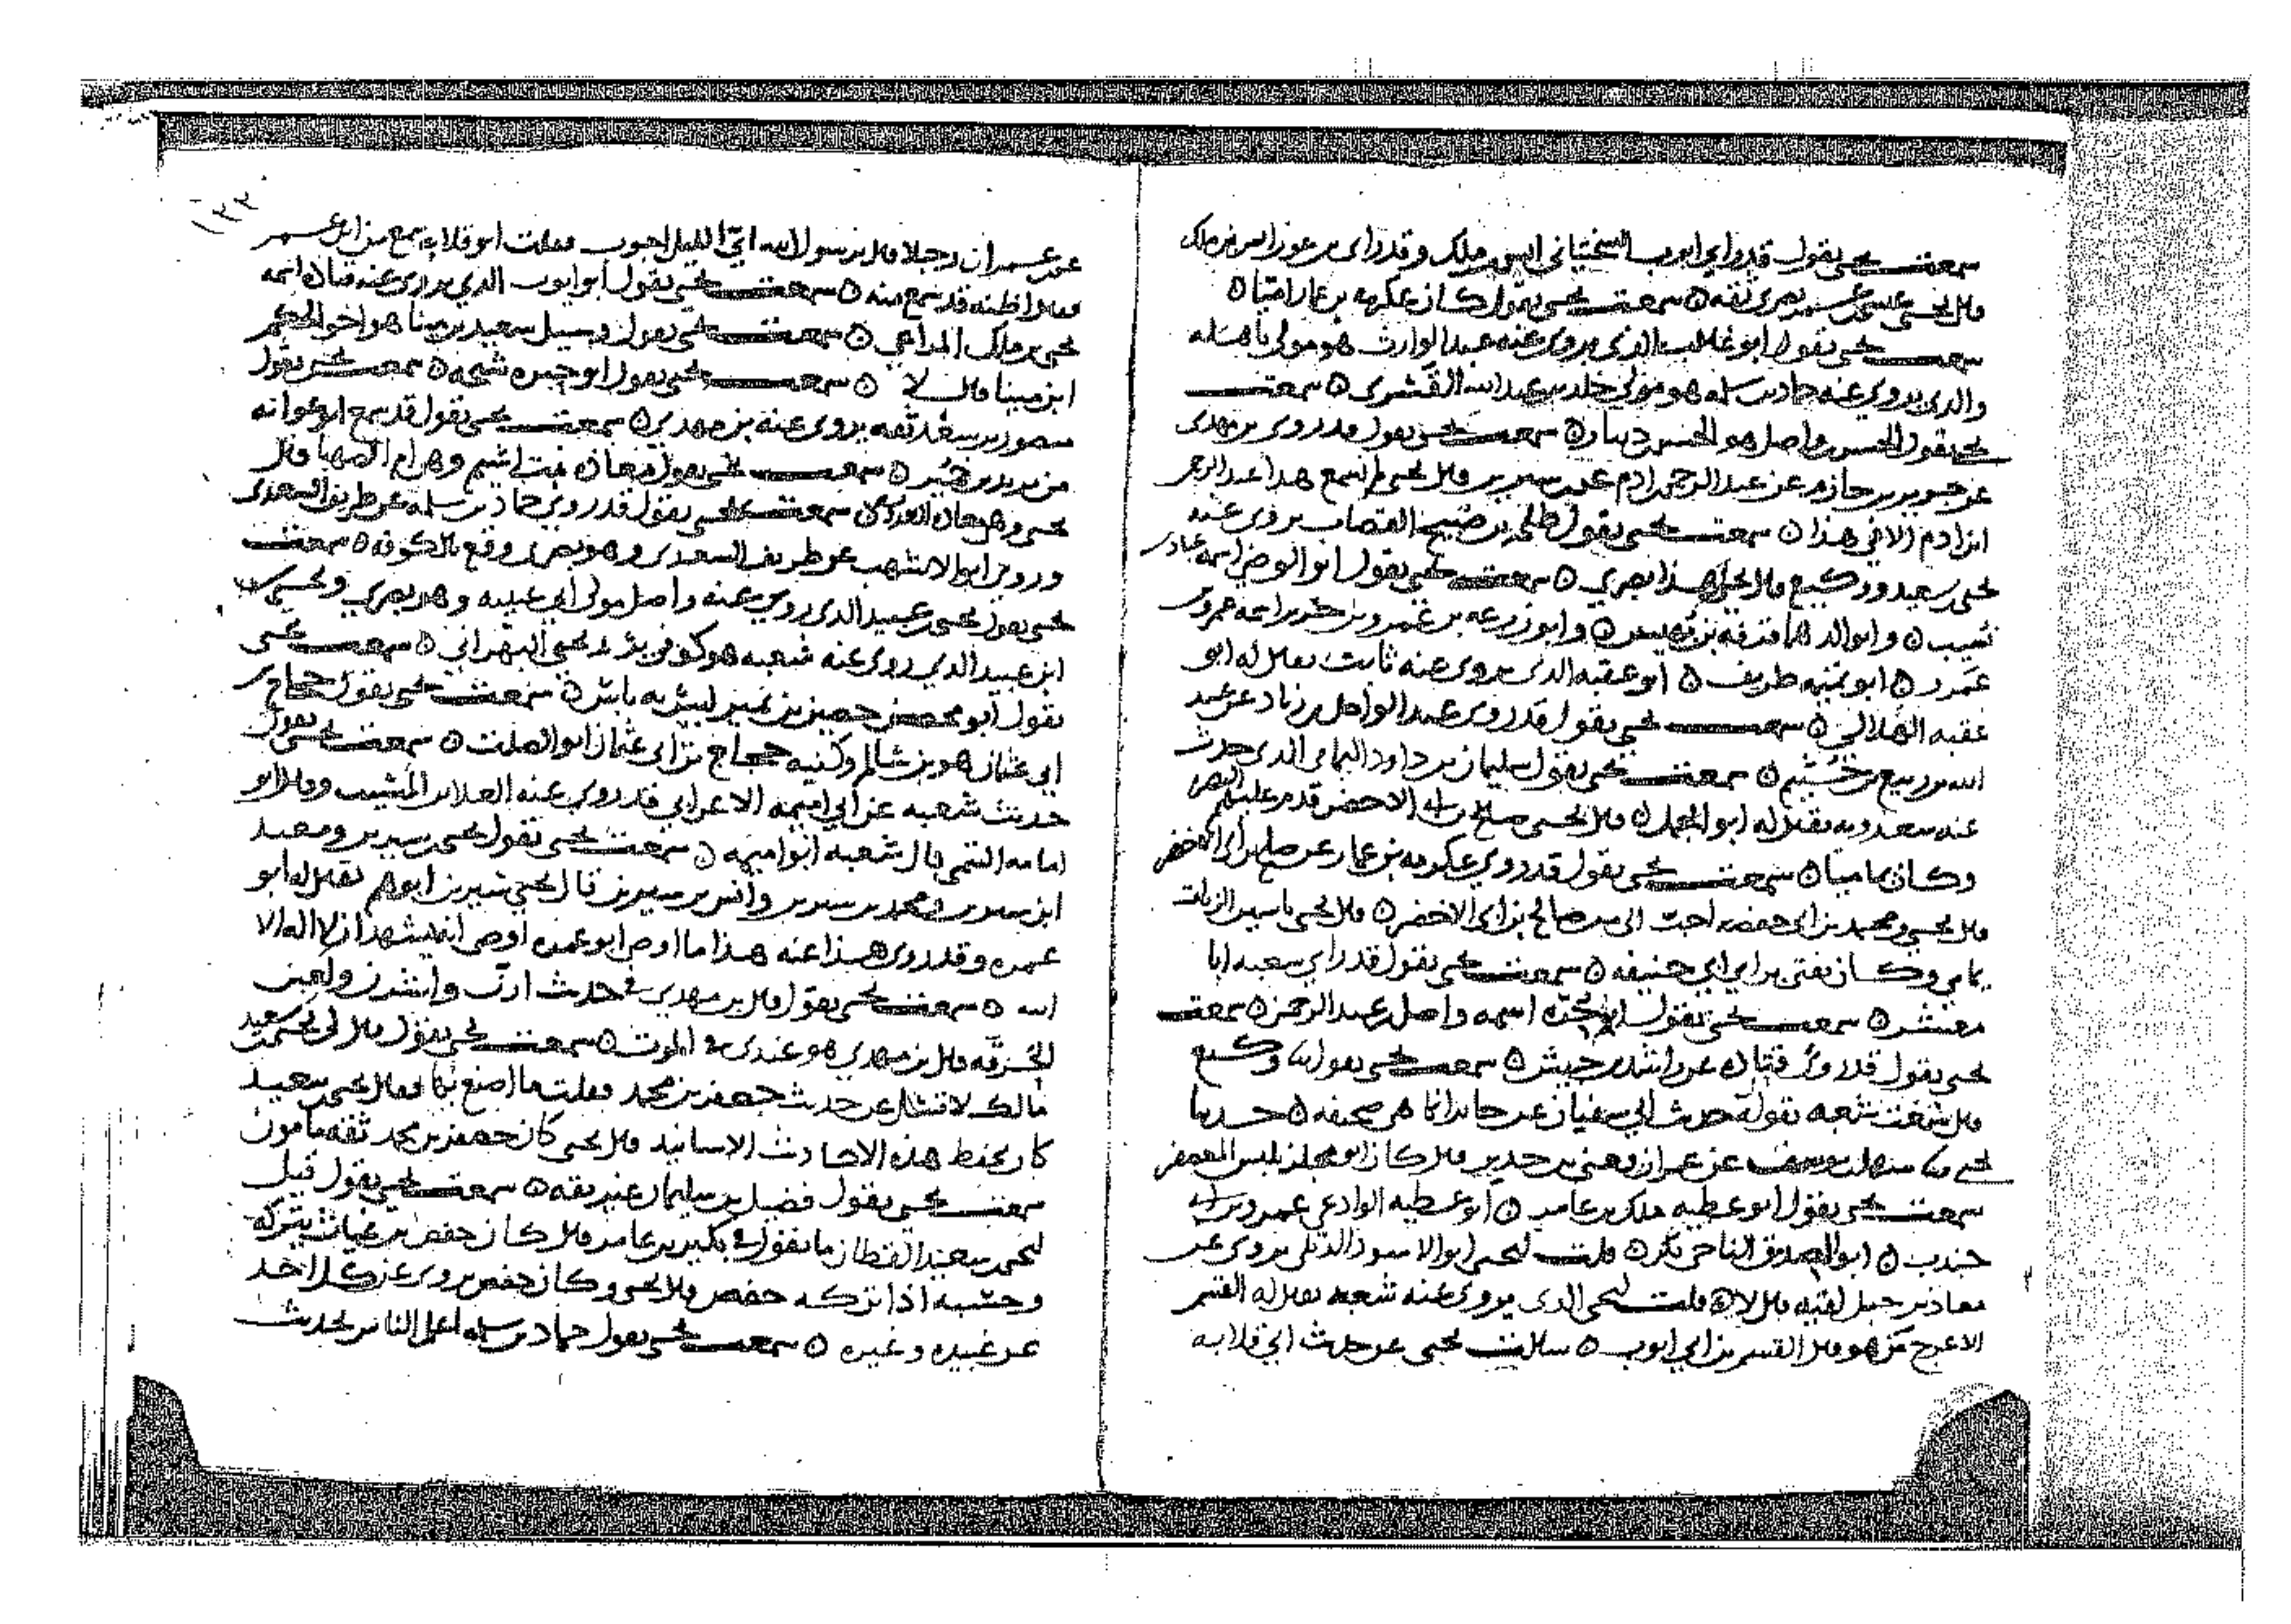 سمعت يحيى يقول قد رأى ايوب السختياني انس بن ملك وقد رأى بن عون انس بن ملك
قال يحيى عيسى بن عمر بصري ثقه ه سمعت يحيى يقول كان عكرمه بن عمار اميا ه
سمعت يحيى يقول ابو غالب الذي يروي عنه عبد الوارث هو مولى باهله
والذي يروي عنه حماد بن سلمه هو مولى خلد بن عبد الله القشري ه سمعت
يحيى يقول الحسن بن واصل هو الحسن بن دينار ه سمعت يحيى يقول قد روى بن مهدي
عن جرير بن حازم عن عبد الرحمن بن ادم عن بن سيرين قال يحيى لم نسمع هذا عبد الرحمن
ابن ادم الا في هذا ه سمعت يحيى يقول طلحه بن صبيح القصاب يروى عنه
يحيى بن سعيد ووكيع قال يحيى هذا بصري ه سمعت يحيى يقول ابو الوضي اسمه عباد بن
نسيب ه وابو الدهما قرفه بن بهيس ه وابو زرعه بن عمرو بن جرير اسمه عمرو بن
عمرو ه ابو تميمه طريف ه ابو عقبه الذي يروى عنه ثابت يقال له ابو
عقبه الهلالي ه سمعت يحيى يقول قد روى عبد الواحد بن زياد عن عبد
الله بن ربيع بن خثيم ه سمعت يحيى يقول سليمان بن داود اليمامي الذي حدث
عنه سعدويه يقال له ابو الجمل ه قال يحيى صلح بن ابي الاخضر قدم عليهم البصره
وكان يماميا ه سمعت يحيى يقول قد روى عكرمه بن عمار عن صلح بن ابي الاخضر
قال يحيى ومحمد بن ابي حفصه احب الي من صالح بن ابي الاخضر ه قال يحيى ياسين الزيات
يمامي وكان يفتي براي ابي حنيفه ه سمعت يحيى يقول قد راى شعبه ابا
معشر ه سمعت يحيى يقول ابو حره اسمه واصل بن عبد الرحمن ه سمعت
يحيى يقول قد روى قتاده عن راشد بن حبيش ه سمعت يحيى يقول نا وكيع
قال سمعت شعبه يقول حديث ابي سفيان عن جابر انما هي صحيفه ه حدثنا
يحيى نا سهل بن يوسف عن عمران يعني بن حدير قال كان ابو مجلز يلبس المعصفر
سمعت يحيى يقول ابو عطيه ملك بن عامر ه ابو عطيه الوادعي عمرو بن ابي
جندب ه ابو الصديق الناجي بكر ه قلت ليحيى ابو الاسود الديلي يروي عن
معاذ بن جبل لقيه قال لا ه قلت ليحيى الذي يروي عنه شعبه يقال له القسم
الاعرج من هو قال القسم بن ابي ايوب ه سالت يحيى عن حديث ابي قلابه
١٣٣
عن بن عمر ان رجلا قال يا رسول الله اي الليل اجوب فقلت ابو قلابه سمع من ابن عمر
فقال اظنه قد سمع منه ه سمعت يحيى يقول ابو ايوب الذي يروى عنه قتاده اسمه
يحيى بن ملك المراغي ه سمعت يحيى يقول وسيل سعيد بن مينا هو اخو الحكم
ابن مينا قال لا ه سمعت يحيى يقول ابو جمره شيخه ه سمعت يحيى يقول
منصور بن سعد ثقه يروى عنه بن مهدي ه سمعت يحيى يقول قد سمع ابو عوانه
من يزيد بن خمير ه سمعت يحيى يقول
يحيى سمعت يحيى يقول قد روى حماد بن سلمه عن طريف السعدي
وروى ابو الاشهب عن طريف السعدي وهو بصري وقع بالكوفه ه سمعت
يحيى يقول يحيى بن عبيد الذي يروي عنه واصل مولى ابي عيينه وهو بصري ويحيى
ابن عبيد الذي روى عنه شعبه هو كوفي يحيى البهراني ه سمعت يحيى
يقول ابو محصن حصين بن نمير ليس به باس ه سمعت يحيى يقول حجاج بن
ابي عثمان هو بن سالم وكنيه حجاج بن ابي عثمان ابو الصلت ه سمعت يحيى يقول
حديث شعبه عن ابي اميمه الاعرابي قد روى عنه العلاء بن المسيب وقال ابو
امامه التيمي قال شعبه ابو اميمه ه سمعت يحيى يقول يحيى بن سيرين ومعبد
ابن سيرين ومحمد بن سيرين وانس بن سيرين قال يحيى سيرين ابوهم يقال له ابو
عمره وقد روى هذا عنه هذا ما اوصى ابو عمره اوصى انه يشهد ان لا اله الا
الله ه سمعت يحيى يقول قال بن مهدي في حديث
قال بن مهدي هو عندي في الموت ه سمعت يحيى يقول قال لي يحيى بن سعيد
مالك لا تسال عن حديث جعفر بن محمد فقلت ما اصنع بها فقال يحيى بن سعيد
كان يحفظ هذه الاحاديث الاسانيد قال يحيى كان جعفر بن محمد ثقه مامون
سمعت يحيى يقول فضيل بن سليمان غير ثقه ه سمعت يحيى يقول قيل
ليحيى بن سعيد القطان ما تقول في بكير بن عامر قال كان حفص بن غياث يتركه
وحسبه اذا تركه حفص قال يحيى وكان حفص يروى عن كل احد
عن عبيده وغيره ه سمعت يحيى يقول حماد بن سلمه اعلم الناس بحديث